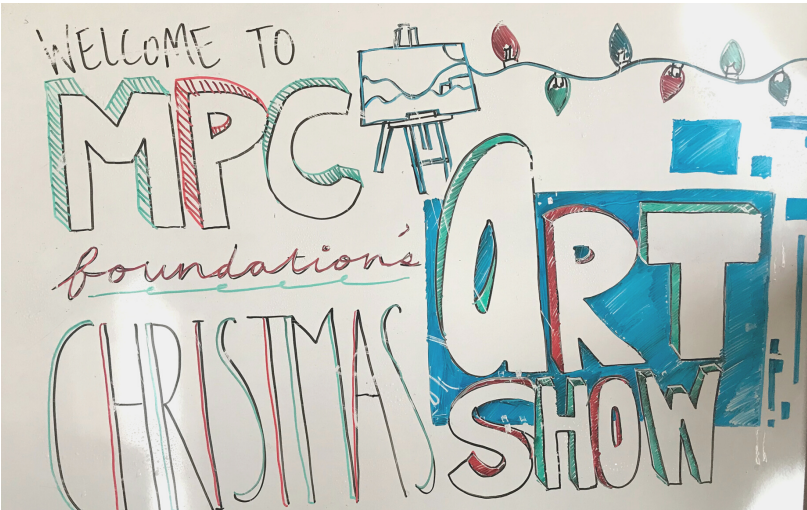 WELCOME TO
MPC
foundation's
CHRISTMAS
ART
SHOW